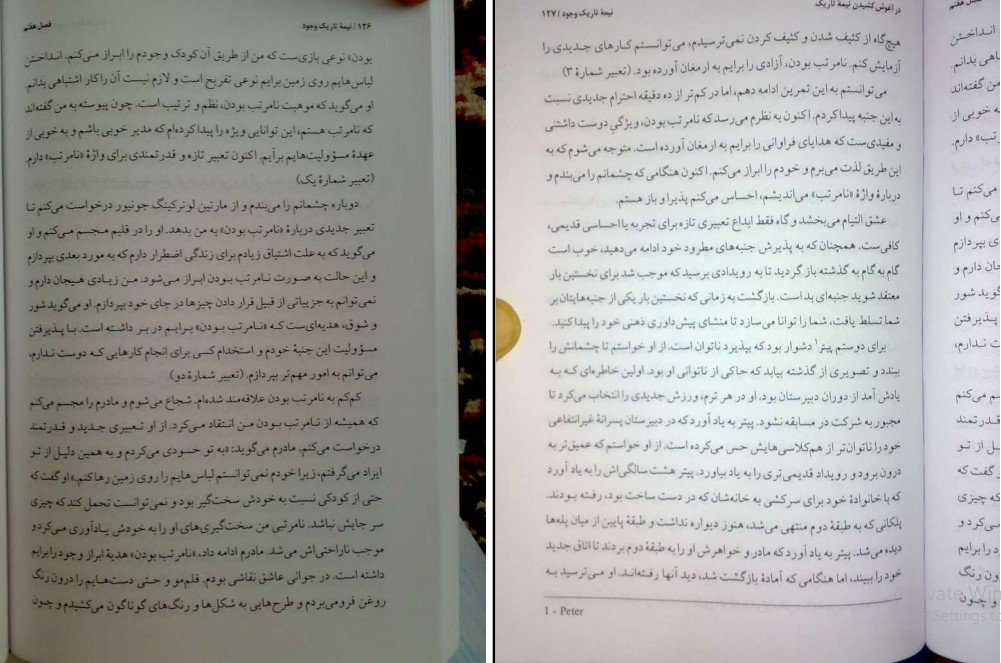 ۱۳۶ / نیمهٔ تاریک وجود
فصل هفتم
بودن» نوعی بازی‌ست که من از طریق آن کودک وجودم را ابراز می‌کنم. انداختن
لباس‌هایم روی زمین برایم نوعی تفریح است و لازم نیست آن را کار اشتباهی بدانم.
او می‌گوید که موهبت نامرتب بودن، نظم و ترتیب است. چون پیوسته به من گفته‌اند
که نامرتب هستم، این توانایی ویژه را پیدا کرده‌ام که مدیر خوبی باشم و به خوبی از
عهدهٔ مسؤولیت‌هایم برآیم. اکنون تعبیر تازه و قدرتمندی برای واژهٔ «نامرتب» دارم.
(تعبیر شمارهٔ یک)
دوباره چشمانم را می‌بندم و از مارتین لوترکینگ جونیور درخواست می‌کنم تا
تعبیر جدیدی دربارهٔ «نامرتب بودن» به من بدهد. او را در قلبم مجسم می‌کنم و او
می‌گوید که به علت اشتیاق زیادم برای زندگی اضطرار دارم که به مورد بعدی بپردازم
و این حالت به صورت نامرتب بودن ابراز می‌شود. من زیادی هیجان دارم و
نمی‌توانم به جزییاتی از قبیل قرار دادن چیزها در جای خود بپردازم. او می‌گوید شور
و شوق، هدیه‌ای‌ست که «نامرتب بودن» برایم در بر داشته است. با پذیرفتن
مسؤولیت این جنبهٔ خودم و استخدام کسی برای انجام کارهایی که دوست ندارم،
می‌توانم به امور مهم‌تر بپردازم. (تعبیر شمارهٔ دو)
کم‌کم به نامرتب بودن علاقه‌مند شده‌ام. شجاع می‌شوم و مادرم را مجسم می‌کنم
که همیشه از نامرتب بودن من انتقاد می‌کرد. از او تعبیری جدید و قدرتمند
درخواست می‌کنم. مادرم می‌گوید: «به تو حسودی می‌کردم و به همین دلیل از تو
ایراد می‌گرفتم، زیرا خودم نمی‌توانستم لباس‌هایم را روی زمین رها کنم.» او گفت که
حتی از کودکی نسبت به خودش سخت‌گیر بود و نمی‌توانست تحمل کند که چیزی
سر جایش نباشد. نامرتبی من سخت‌گیری‌های او را به خودش یادآوری می‌کرد و
موجب ناراحتی‌اش می‌شد. مادرم ادامه داد، «نامرتب بودن» هدیهٔ ابراز وجود را برایم
داشته است. در جوانی عاشق نقاشی بودم. قلم‌مو و حتی دست‌هایم را درون رنگ
روغن فرومی‌بردم و طرح‌هایی به شکل‌ها و رنگ‌های گوناگون می‌کشیدم و چون
در آغوش کشیدن نیمهٔ تاریک
نیمهٔ تاریک وجود / ۱۳۷
هیچ‌گاه از کثیف شدن و کثیف کردن نمی‌ترسیدم، می‌توانستم کارهای جدیدی را
آزمایش کنم. نامرتب بودن، آزادی را برایم به ارمغان آورده بود. (تعبیر شمارهٔ ۳)
می‌توانستم به این تمرین ادامه دهم، اما در کم‌تر از ده دقیقه احترام جدیدی نسبت
به این جنبه پیدا کردم. اکنون به نظرم می‌رسد که نامرتب بودن، ویژگیِ دوست داشتنی
و مفیدی‌ست که هدایای فراوانی را برایم به ارمغان آورده است. متوجه می‌شوم که به
این طریق لذت می‌برم و خودم را ابراز می‌کنم. اکنون هنگامی که چشمانم را می‌بندم و
دربارهٔ واژهٔ «نامرتب» می‌اندیشم، احساس می‌کنم پذیرا و باز هستم.
عشق التیام می‌بخشد و گاه فقط ابداع تعبیری تازه برای تجربه یا احساسی قدیمی،
کافی‌ست. همچنان که به پذیرش جنبه‌های مطرود خود ادامه می‌دهید، خوب است
گام به گام به گذشته بازگردید تا به رویدادی برسید که موجب شد برای نخستین بار
معتقد شوید جنبه‌ای بد است. بازگشت به زمانی که نخستین بار یکی از جنبه‌هایتان بر
شما تسلط یافت، شما را توانا می‌سازد تا منشای پیش‌داوری ذهنی خود را پیدا کنید.
برای دوستم پیتر۱ دشوار بود که بپذیرد ناتوان است. از او خواستم تا چشمانش را
ببندد و تصویری از گذشته بیابد که حاکی از ناتوانی او بود. اولین خاطره‌ای که به
یادش آمد از دوران دبیرستان بود. او در هر ترم، ورزش جدیدی را انتخاب می‌کرد تا
مجبور به شرکت در مسابقه نشود. پیتر به یاد آورد که در دبیرستان پسرانهٔ غیرانتفاعی
خود را ناتوان‌تر از هم‌کلاسی‌هایش حس می‌کرده است. از او خواستم که عمیق‌تر به
درون برود و رویداد قدیمی‌تری را به یاد بیاورد. پیتر هشت سالگی‌اش را به یاد آورد
که با خانوادهٔ خود برای سرکشی به خانه‌شان که در دست ساخت بود، رفته بودند.
پلکانی که به طبقهٔ دوم منتهی می‌شد، هنوز دیواره نداشت و طبقهٔ پایین از میان پله‌ها
دیده می‌شد. پیتر به یاد آورد که مادر و خواهرش او را به طبقهٔ دوم بردند تا اتاق جدید
خود را ببیند، اما هنگامی که آمادهٔ بازگشت شد، دید آنها رفته‌اند. او می‌ترسید به
1 - Peter